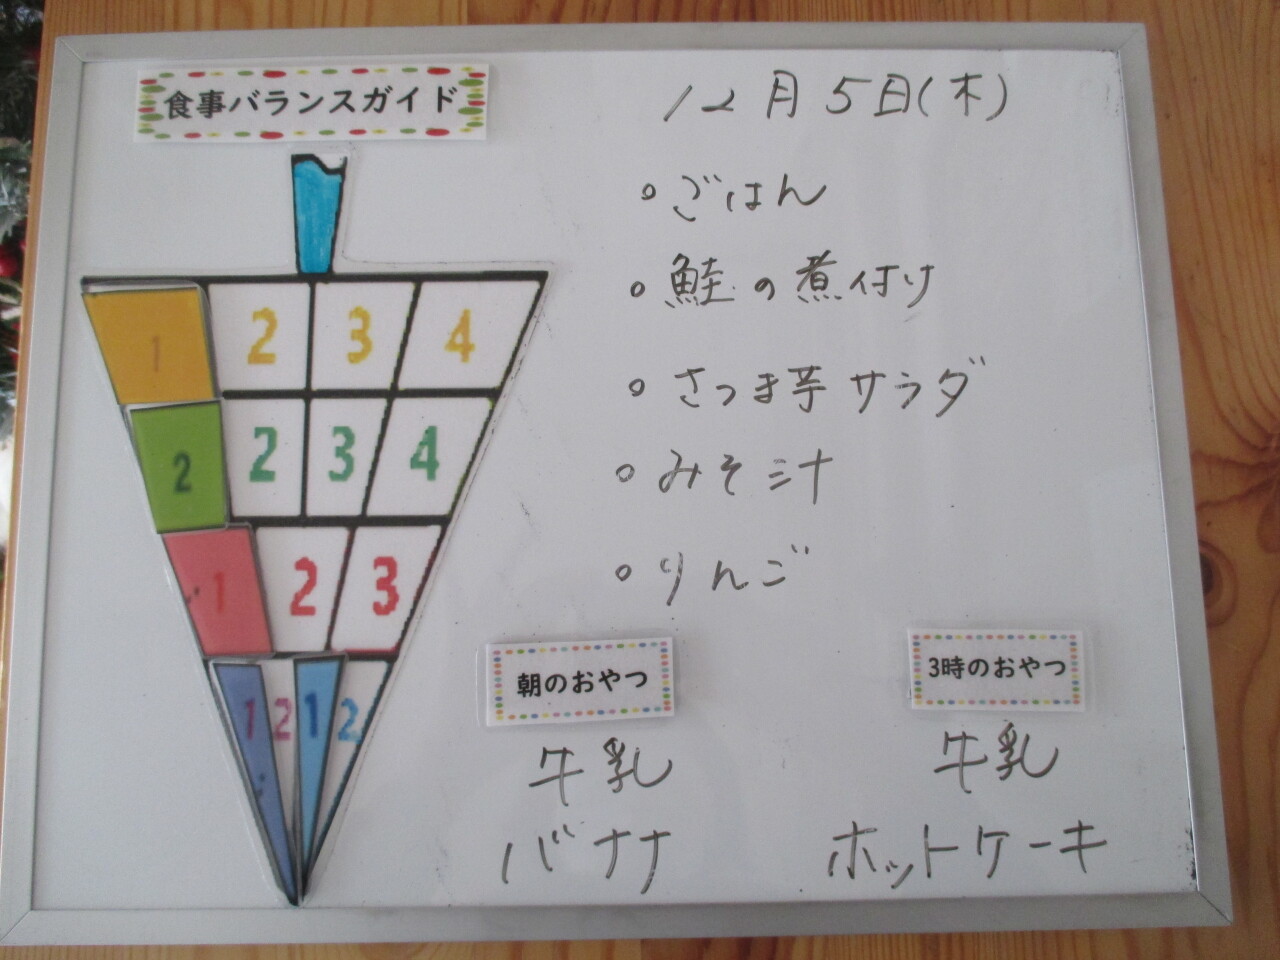 食事バランスガイド
12月5日(木)
。ごはん
。鮭の煮付け
。さつま芋サラダ
。みそ汁
。りんご
1 2 3 4
2 2 3 4
1 2 3
1 2 1 2
朝のおやつ
牛乳
バナナ
3時のおやつ
牛乳
ホットケーキ